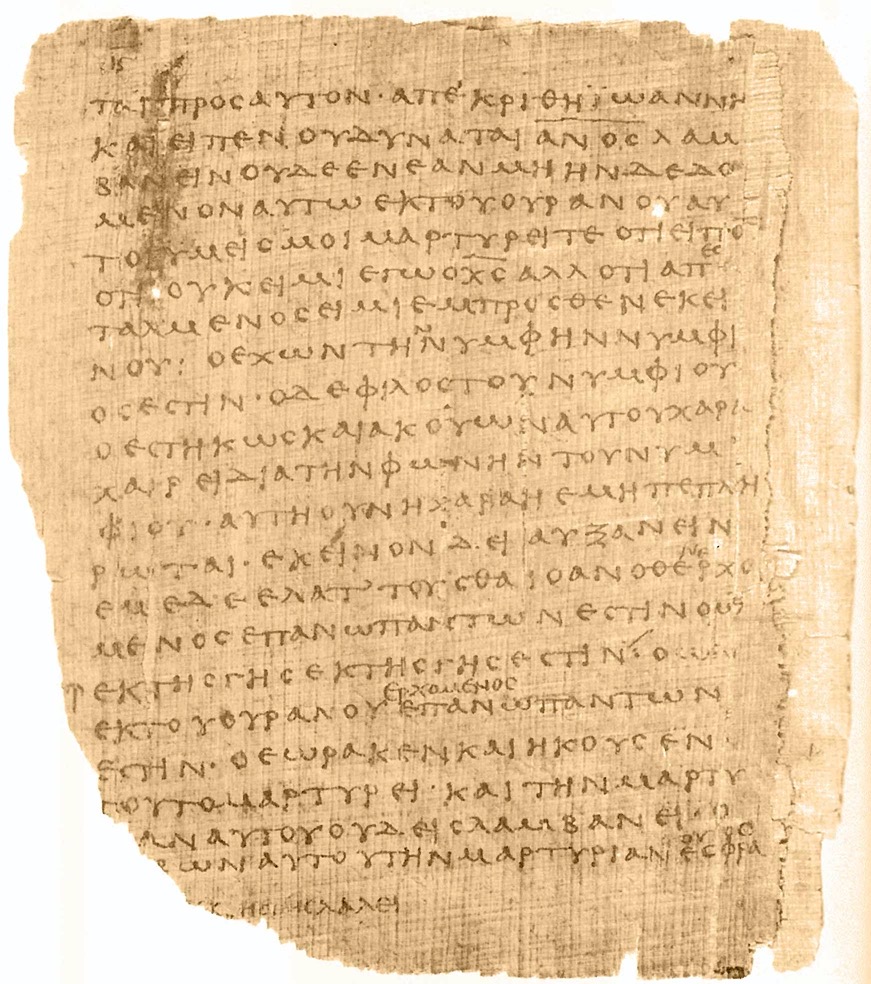 ΤΑΙΠΡΟCΑΥΤΟΝ·ΑΠΕΚΡΙΘΗΪΩΑΝΝΗ
ΚΑΙΕΙΠΕΝΟΥΔΥΝΑΤΑΙΑΝΟCΛΑΜ
ΒΑΝΕΙΝΟΥΔΕΕΝΕΑΝΜΗΗΝΔΕΔΟ
ΜΕΝΟΝΑΥΤΩΕΚΤΟΥΟΥΡΑΝΟΥΑΥ
ΤΟΙΥΜΕΙCΜΟΙΜΑΡΤΥΡΕΙΤΕΟΤΙΕΙΠΟ
ΟΤΙΟΥΚΕΙΜΙΕΓΩΟΧCΑΛΛΟΤΙΑΠΕC
ΤΑΛΜΕΝΟCΕΙΜΙΕΜΠΡΟCΘΕΝΕΚΕΙ
ΝΟΥ:ΟΕΧΩΝΤΗΝΝΥΜΦΗΝΝΥΜΦΙ
ΟCΕCΤΙΝ·ΟΔΕΦΙΛΟCΤΟΥΝΥΜΦΙΟΥ
ΟΕCΤΗΚΩCΚΑΙΑΚΟΥΩΝΑΥΤΟΥΧΑΡΑ
ΧΑΙΡΕΙΔΙΑΤΗΝΦΩΝΗΝΤΟΥΝΥΜ
ΦΙΟΥ·ΑΥΤΗΟΥΝΗΧΑΡΑΗΕΜΗΠΕΠΛΗ
ΡΩΤΑΙ·ΕΚΕΙΝΟΝΔΕΙΑΥΞΑΝΕΙΝ
ΕΜΕΔΕΕΛΑΤΤΟΥCΘΑΙΟΑΝΟΘΕΝΕΡΧΟ
ΜΕΝΟCΕΠΑΝΩΠΑΝΤΩΝΕCΤΙΝΟ
ΕΚΤΗCΓΗCΕΚΤΗCΓΗCΕCΤΙΝ·Ο
ΕΚΤΟΥΟΥΡΑΝΟΥΕΡΧΟΜΕΝΟCΕΠΑΝΩΠΑΝΤΩΝ
ΕCΤΙΝ·ΟΕΩΡΑΚΕΝΚΑΙΗΚΟΥCΕΝ
ΤΟΥΤΟΜΑΡΤΥΡΕΙ·ΚΑΙΤΗΝΜΑΡΤΥ
ΑΝΑΥΤΟΥΟΥΔΕΙCΛΑΜΒΑΝΕΙ·Ο
ΒΩΝΑΥΤΟΥΤΗΝΜΑΡΤΥΡΙΑΝΕCΦΡΑ
ΛΑΛΕΙ